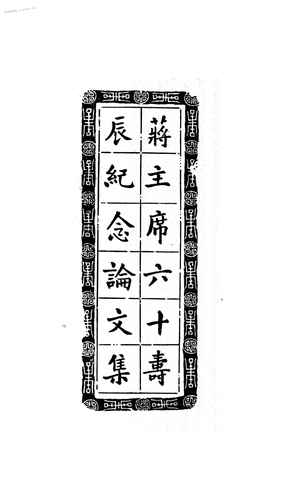 蔣主席六十壽
辰紀念論文集